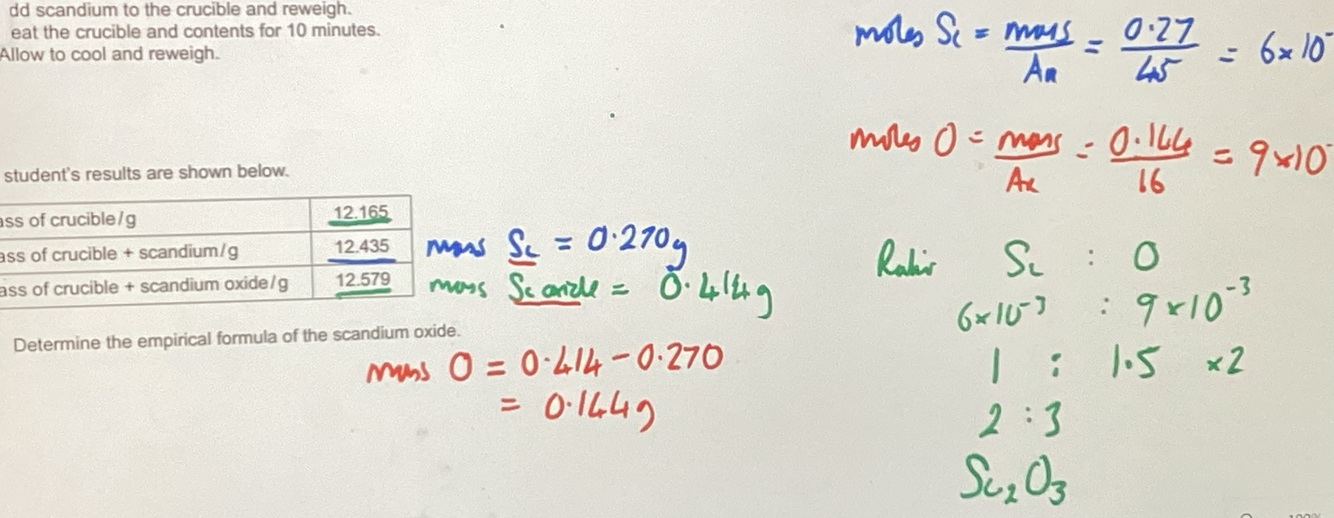 dd scandium to the crucible and reweigh.
eat the crucible and contents for 10 minutes.
Allow to cool and reweigh.
student's results are shown below.
ass of crucible/g 12.165
ass of crucible + scandium/g 12.435
ass of crucible + scandium oxide/g 12.579
mass Sc = 0.270g
mass Sc oxide = 0.414g
Determine the empirical formula of the scandium oxide.
mass O = 0.414 - 0.270
= 0.144g
moles Sc = mass / Ar = 0.27 / 45 = 6 x 10⁻
moles O = mass / Ar = 0.144 / 16 = 9 x 10⁻
Ratio Sc : O
6 x 10⁻³ : 9 x 10⁻³
1 : 1.5 x2
2 : 3
Sc₂O₃